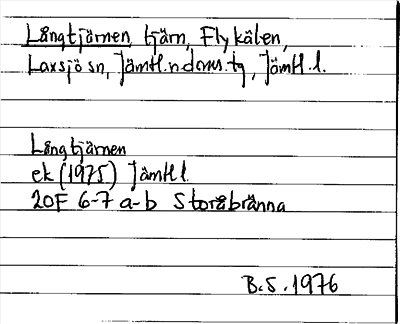 Långtjärnen, tjärn, Flykälen,
Laxsjö sn, Jämtl. n doms. tg, Jämtl. l.
Långtjärnen
ek (1975) Jämtl l.
20F 6-7 a-b Storåbränna
B.S. 1976